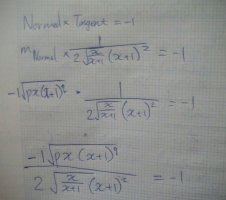 Normal × Tangent = -1
m Normal × 1 / 2√(x/(x+1)) (x+1)² = -1
-1√(px(x+1)⁹) × 1 / 2√(x/(x+1)) (x+1)² = -1
-1√(px(x+1)⁹) / 2√(x/(x+1)) (x+1)² = -1